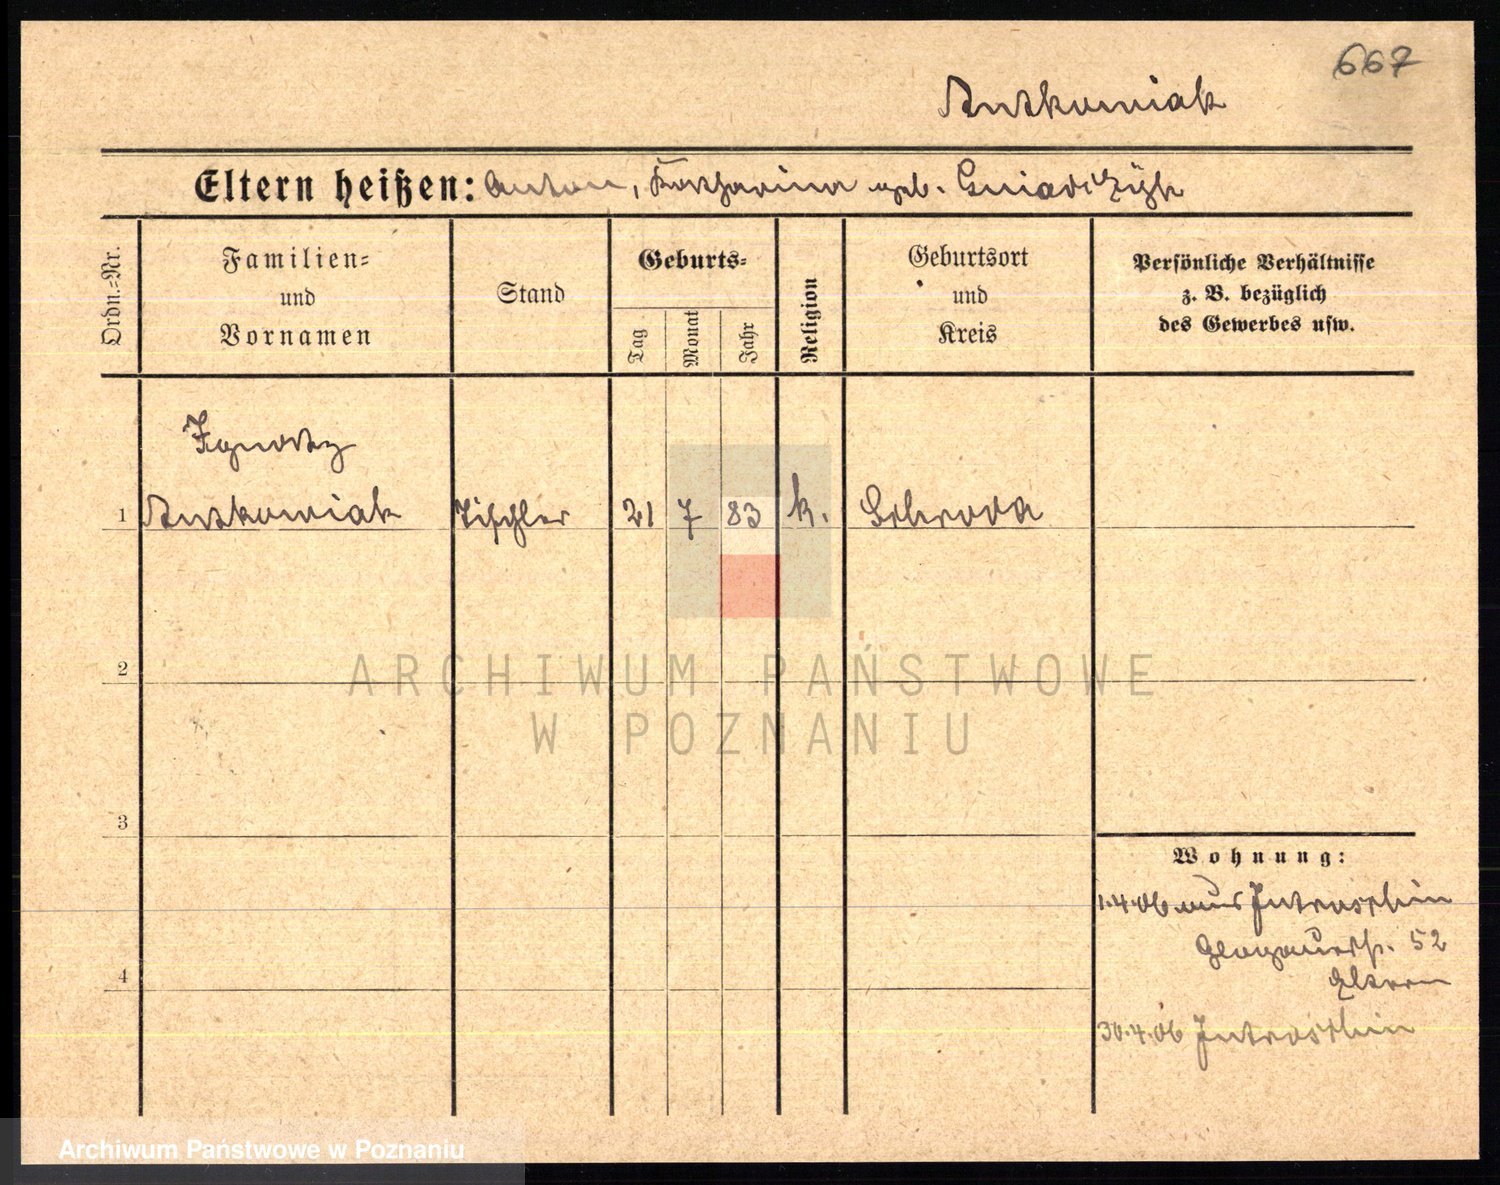 667
Antkowiak
Eltern heißen: Anton, Katharina geb.
Ordn.=Nr.
Familien=
und
Vornamen
Stand
Geburts=
Tag
Monat
Jahr
Religion
Geburtsort
und
Kreis
Persönliche Verhältnisse
z. B. bezüglich
des Gewerbes usw.
Ignatz
1 Antkowiak Tischler 21 7 83 k. Schroda
2
ARCHIWUM PAŃSTWOWE
W POZNANIU
3
Wohnung:
1.4.06 aus Jutroschin
Glogauerstr. 52
Eltern
4
30.4.06 Jutroschin
Archiwum Państwowe w Poznaniu